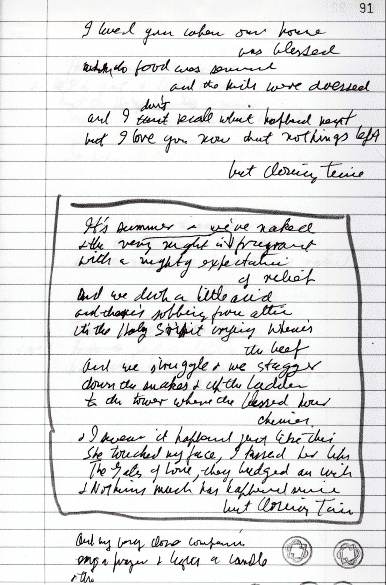 91
I loved you when our home
was blessed
food was served
and the kids were dressed
and I don't recall what happened next
but I love you now that nothings left
but Closing Time
It's summer & we're naked
& the very night is pregnant
with a mighty expectation
of relief
And we drink a little acid
and there's sobbing
it's the Holy Spirit crying Where's
the beef
And we struggle & we stagger
down the snakes & up the ladder
to the tower where the blessed hours
chimes
& I swear it happened just like this
She touched my face, I kissed her lips
The Gates of Love, they budged an inch
& Nothing much has happened since
but Closing Time
And my very close companion
a prayer & lights a candle
& the